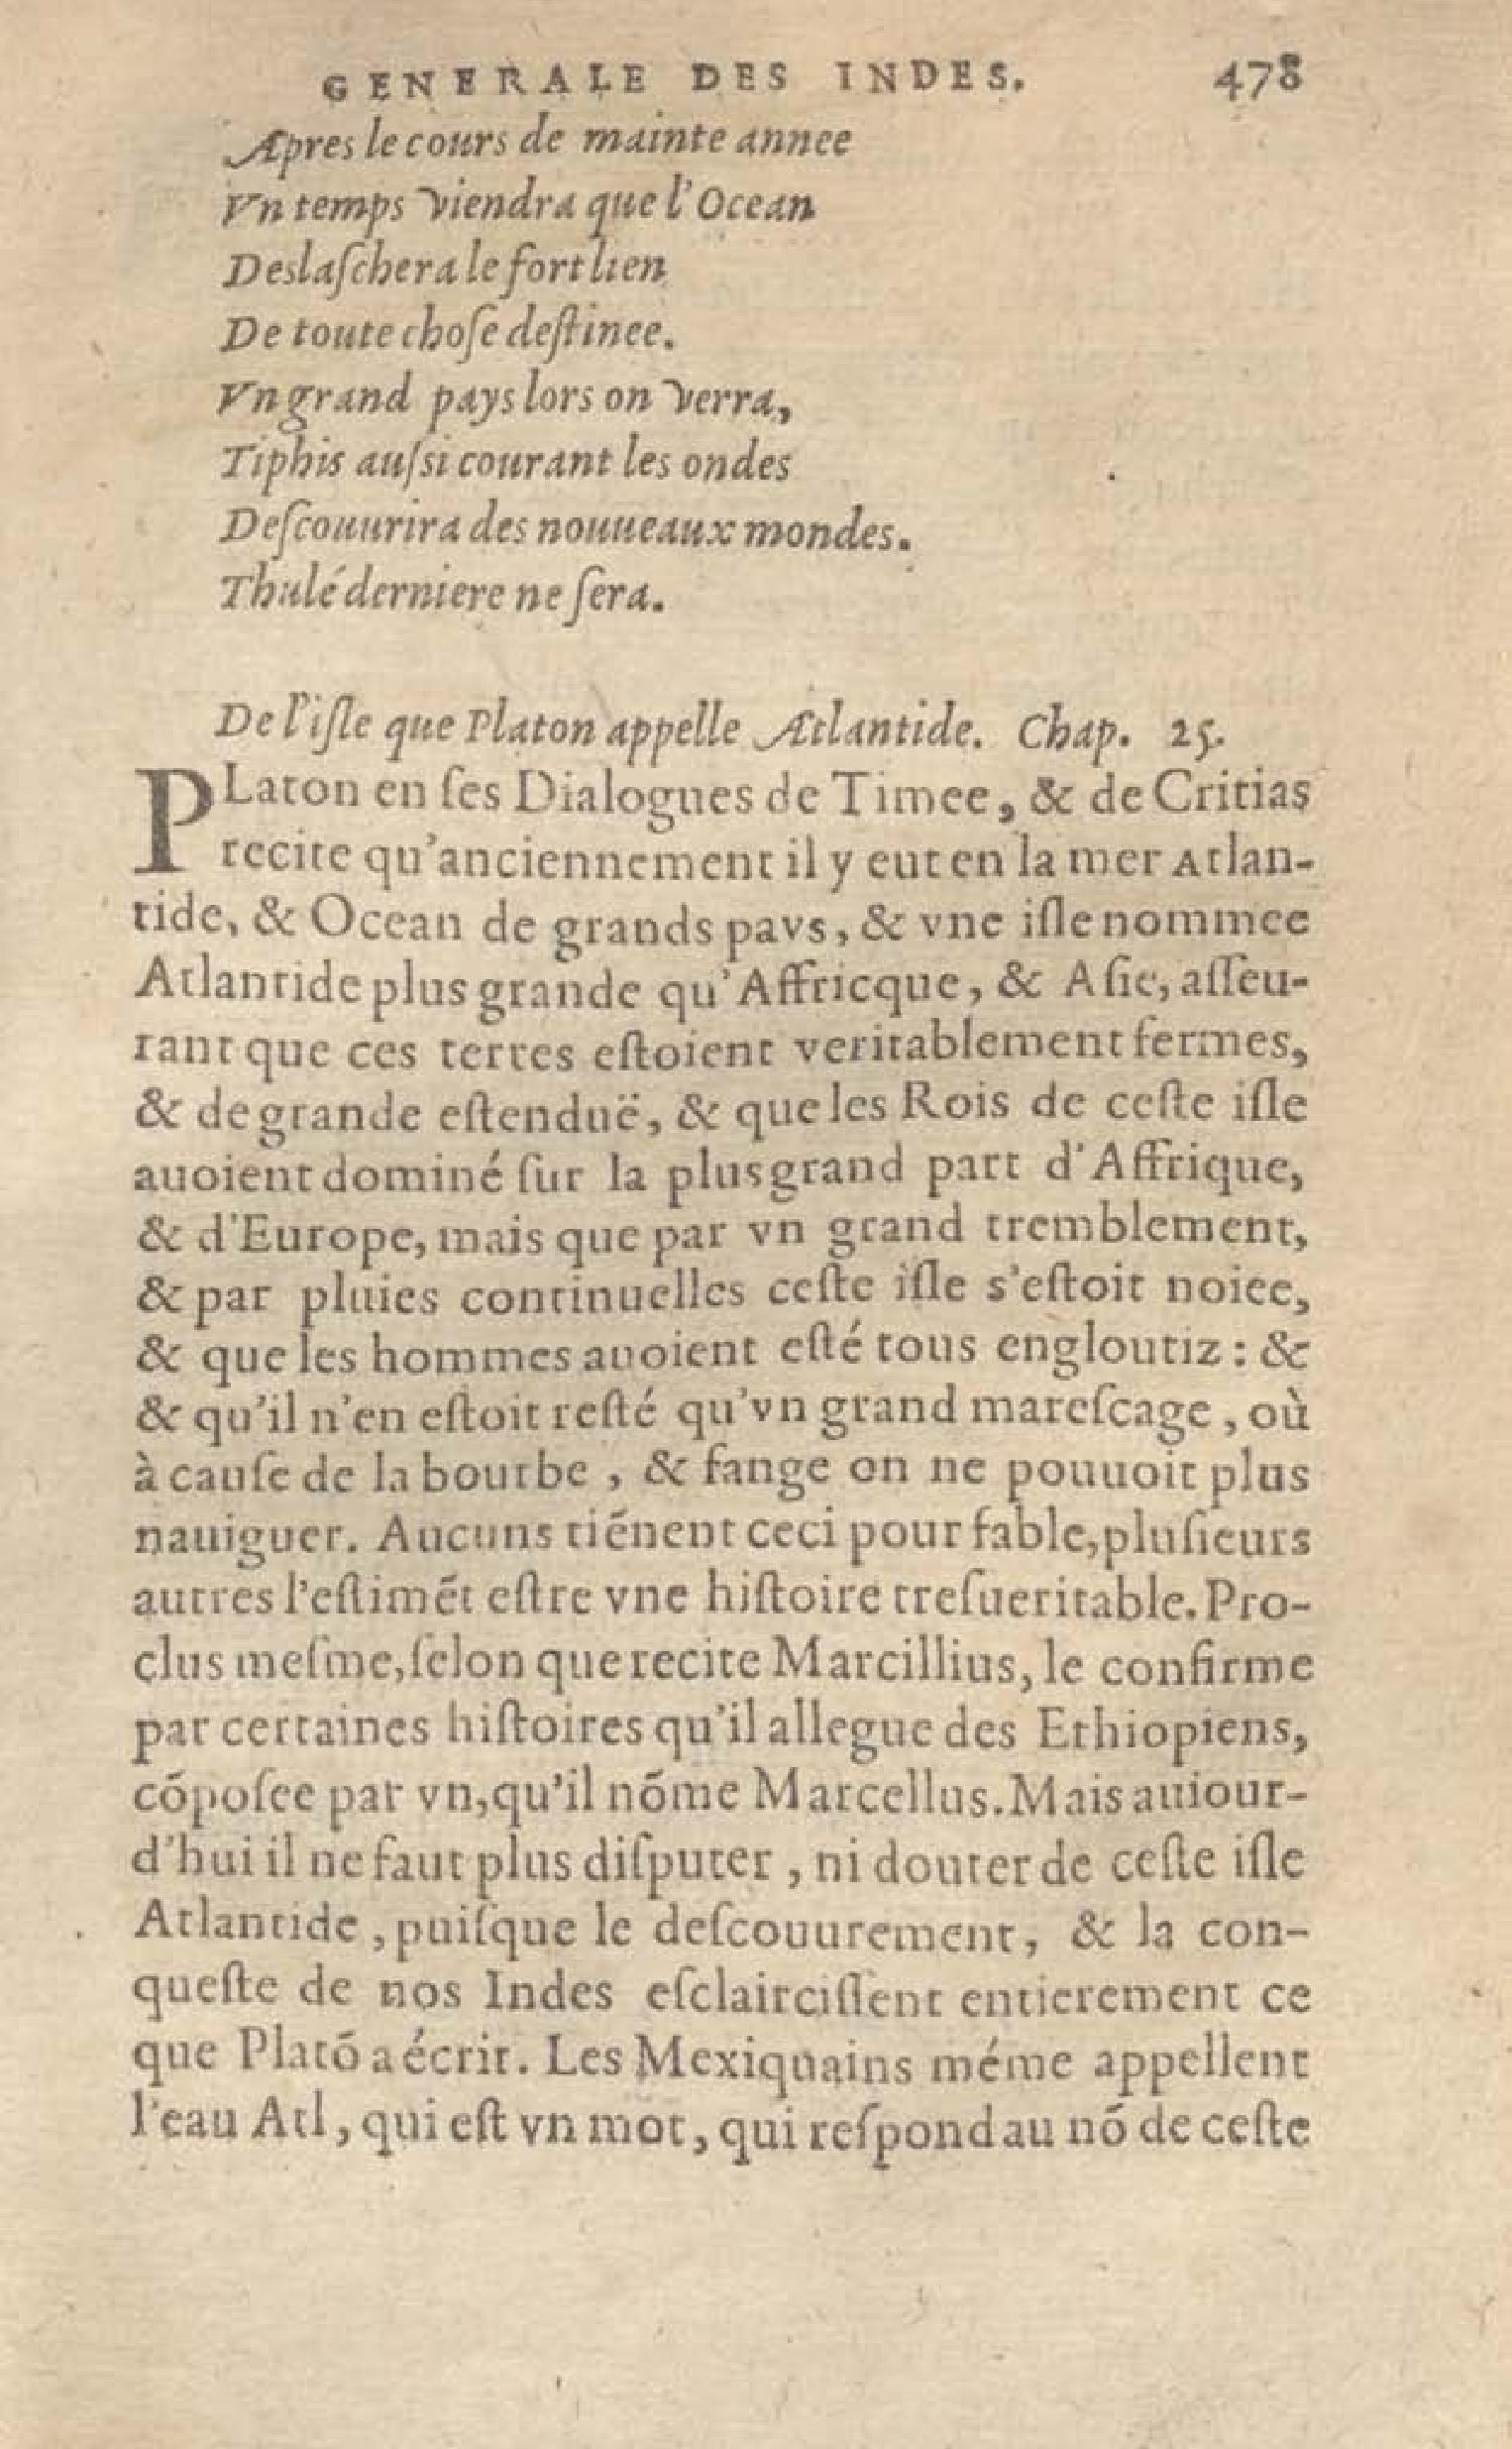 GENERALE DES INDES. 478
Apres le cours de mainte annee
Vn temps viendra que l'Ocean
Deslaſchera le fort lien
De toute choſe deſtinee.
Vn grand pays lors on verra,
Tiphis auſsi courant les ondes
Deſcouurira des nouueaux mondes.
Thulé derniere ne ſera.
De l'iſle que Platon appelle Atlantide. Chap. 25.
PLaton en ſes Dialogues de Timee, & de Critias
recite qu'anciennement il y eut en la mer Atlan-
tide, & Ocean de grands pays, & vne iſle nommee
Atlantide plus grande qu'Affricque, & Aſie, aſſeu-
rant que ces terres eſtoient veritablement fermes,
& de grande eſtenduë, & que les Rois de ceſte iſle
auoient dominé ſur la plus grand part d'Affrique,
& d'Europe, mais que par vn grand tremblement,
& par pluies continuelles ceſte iſle s'eſtoit noiee,
& que les hommes auoient eſté tous engloutiz : &
& qu'il n'en eſtoit reſté qu'vn grand mareſcage, où
à cauſe de la bourbe, & fange on ne pouuoit plus
nauiguer. Aucuns tiēnent ceci pour fable, pluſieurs
autres l'eſtimēt eſtre vne hiſtoire treſueritable. Pro-
clus meſme, ſelon que recite Marcillius, le confirme
par certaines hiſtoires qu'il allegue des Ethiopiens,
cōpoſee par vn, qu'il nōme Marcellus. Mais auiour-
d'hui il ne faut plus diſputer, ni douter de ceſte iſle
Atlantide, puiſque le deſcouurement, & la con-
queſte de nos Indes eſclairciſſent entierement ce
que Platō a écrit. Les Mexiquains méme appellent
l'eau Atl, qui eſt vn mot, qui reſpond au nō de ceſte